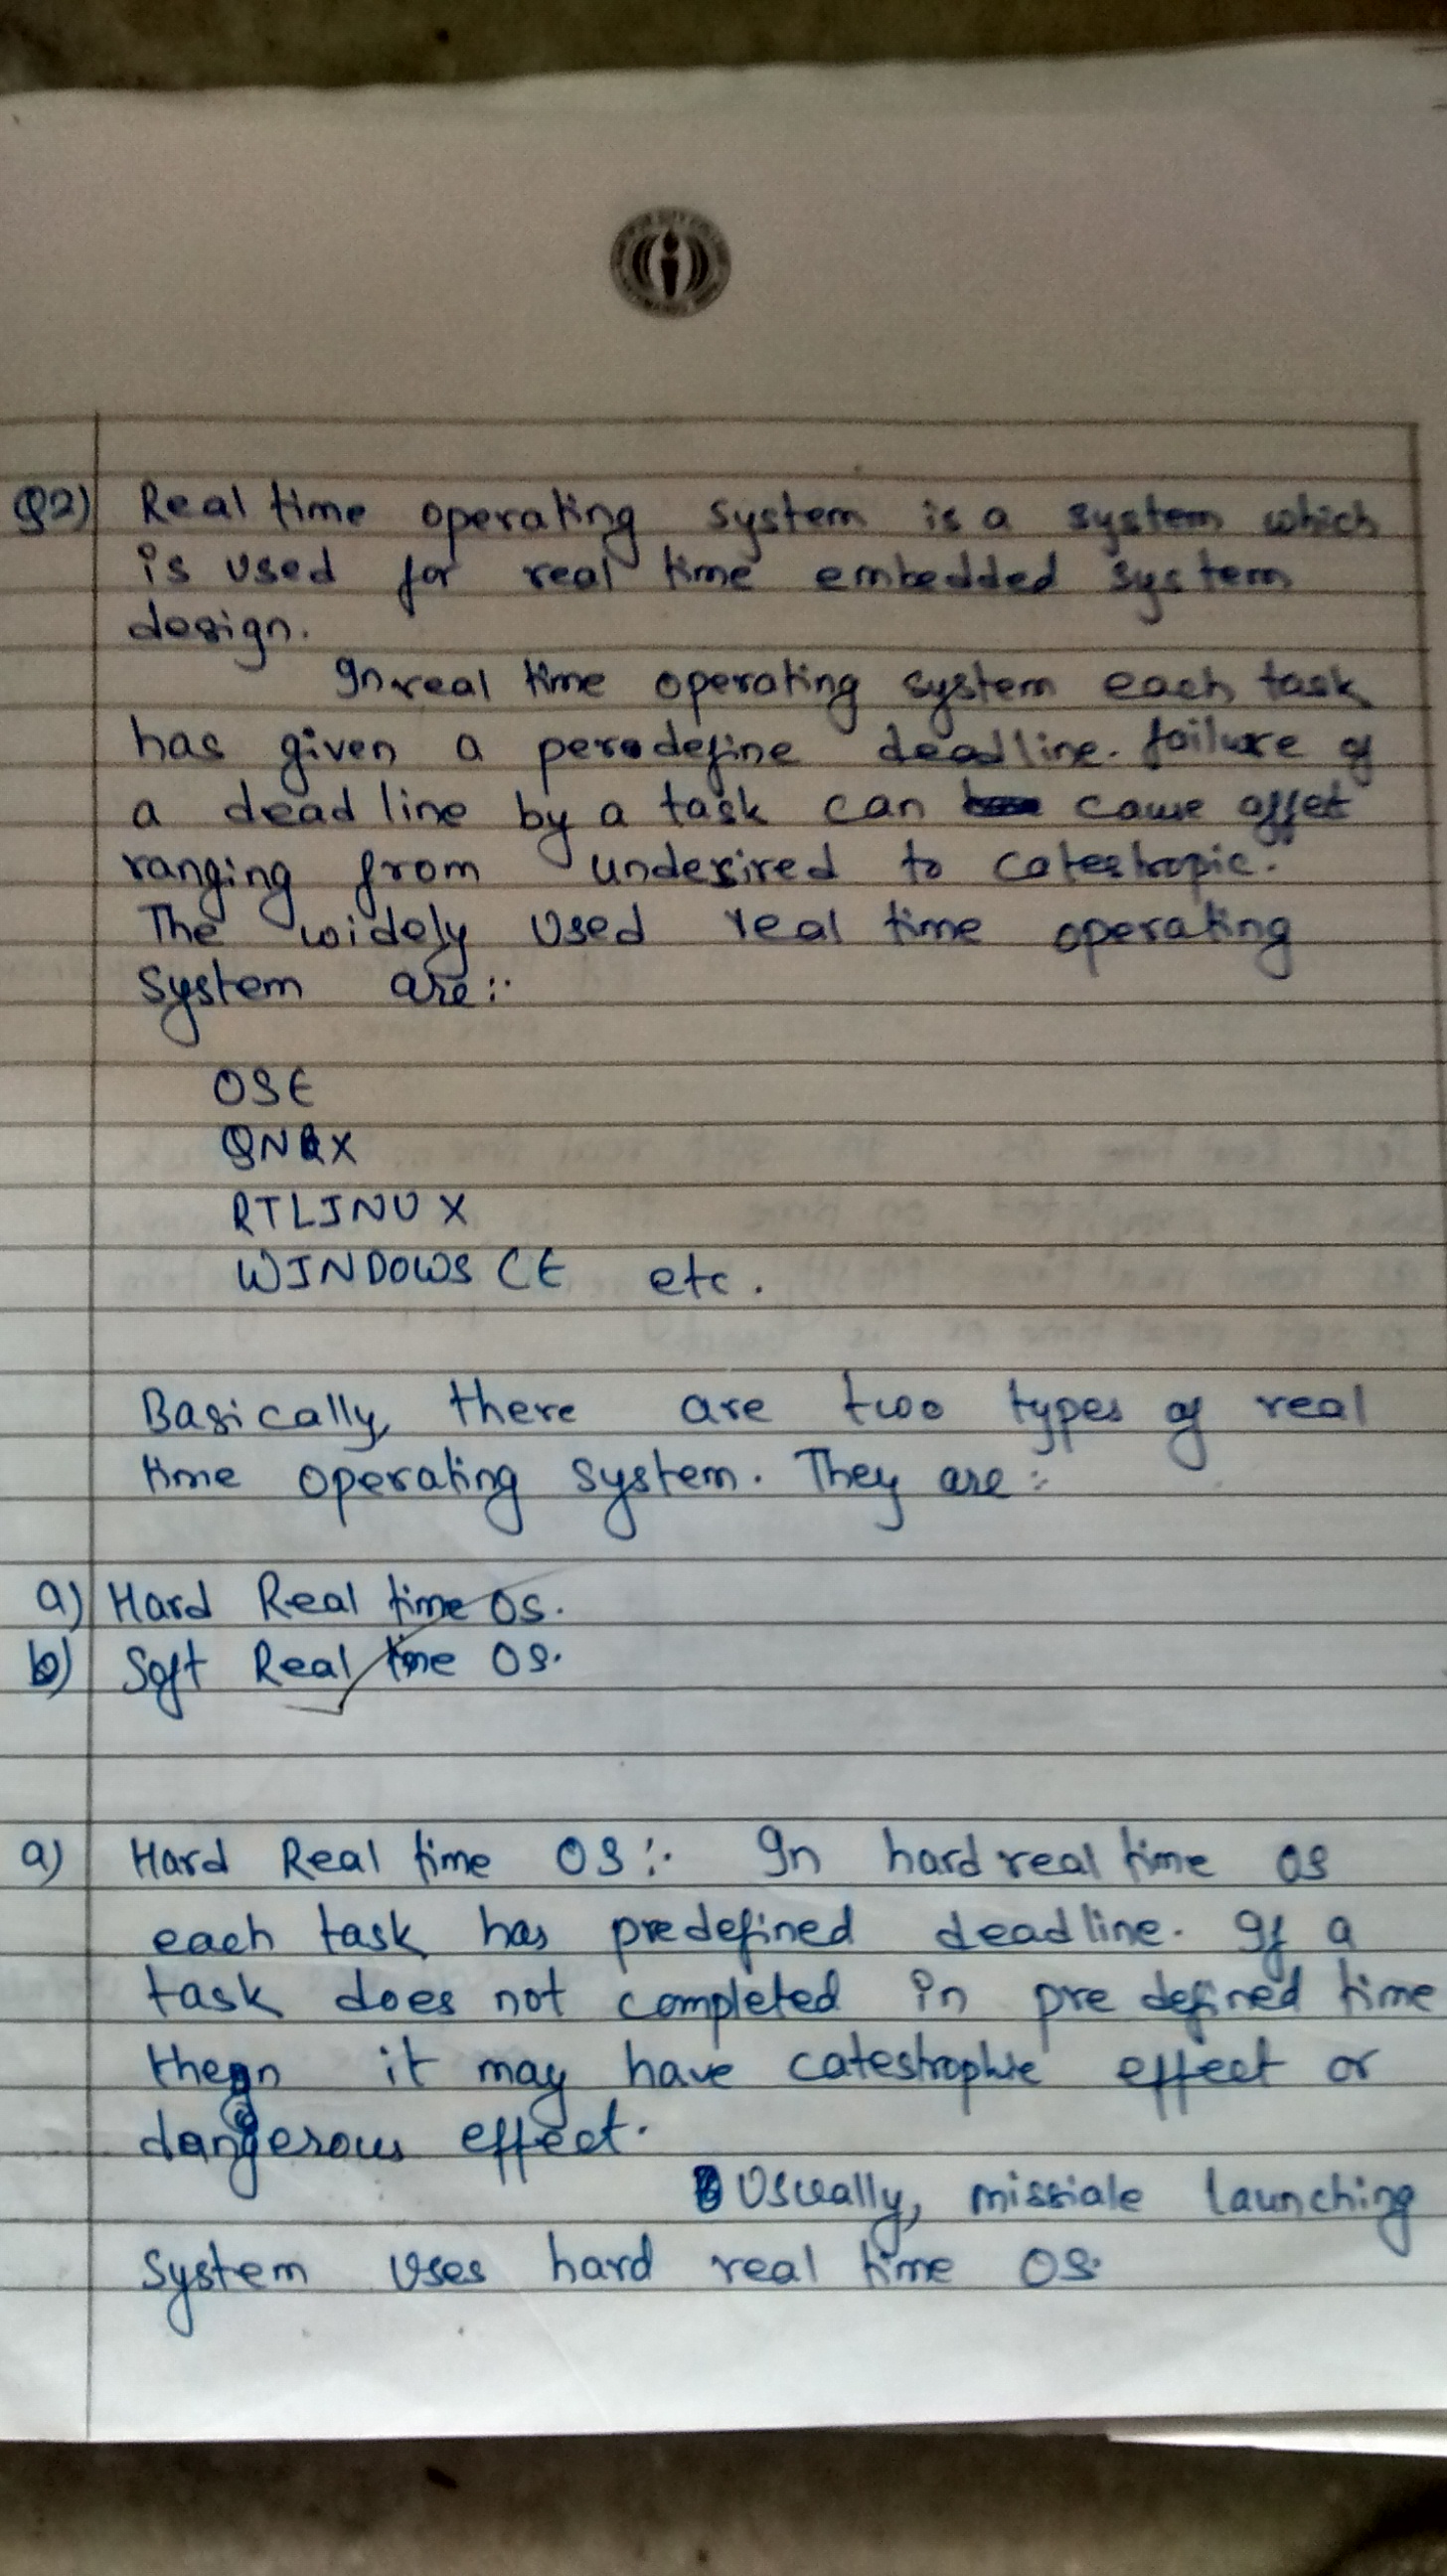 Q2) Real time operating system is a system which
is used for real time embedded system
design.
In real time operating system each task
has given a peredefine deadline. failure of
a dead line by a task can cause affet
ranging from undesired to catestropic.
The widely used real time operating
system are:-
OSE
QNX
RTLINUX
WINDOWS CE etc.
Basically, there are two types of real
time operating system. They are:-
a) Hard Real time OS.
b) Soft Real time OS.
a) Hard Real time OS:- In hard real time OS
each task has predefined deadline. If a
task does not completed in pre defined time
then it may have catestrophie effect or
dangerous effect.
Usually, missiale launching
system uses hard real time OS.